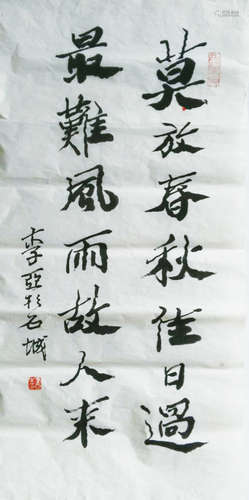 莫放春秋佳日過
最難風雨故人来
李亞於石城